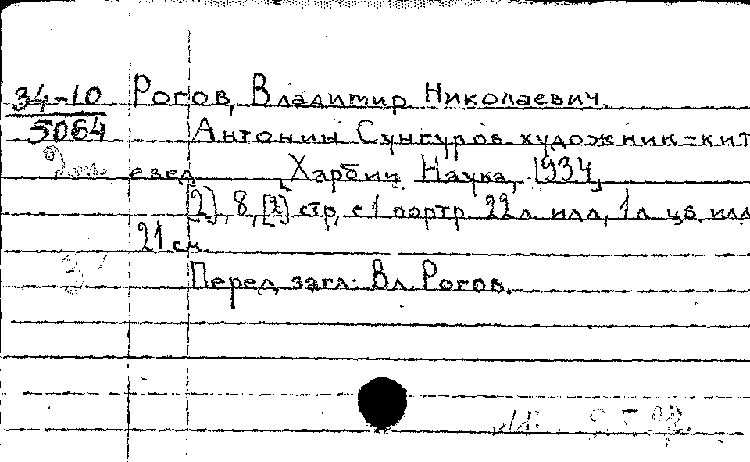 34-10 Рогов, Владимир Николаевич.
5064 Антонин Сунгуров художник-кит
аевед. Харбин, Наука, 1934,
[2], 8, [2] стр. с 1 портр. 22 л. илл., 1 л. цв. илл
21 см.
Перед загл.: Вл. Рогов.